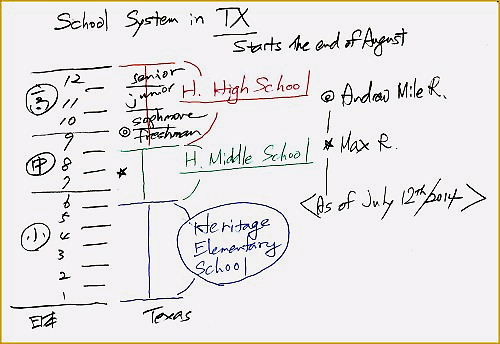 School System in TX
Starts the end of August
12
senior
11
junior
10
sophmore
9
freshman
H. High School
高
8
7
中
H. Middle School
6
5
4
3
2
1
小
Heritage
Elementary
School
日本
Texas
Andrew Mile R.
Max R.
<As of July 12th/2014>